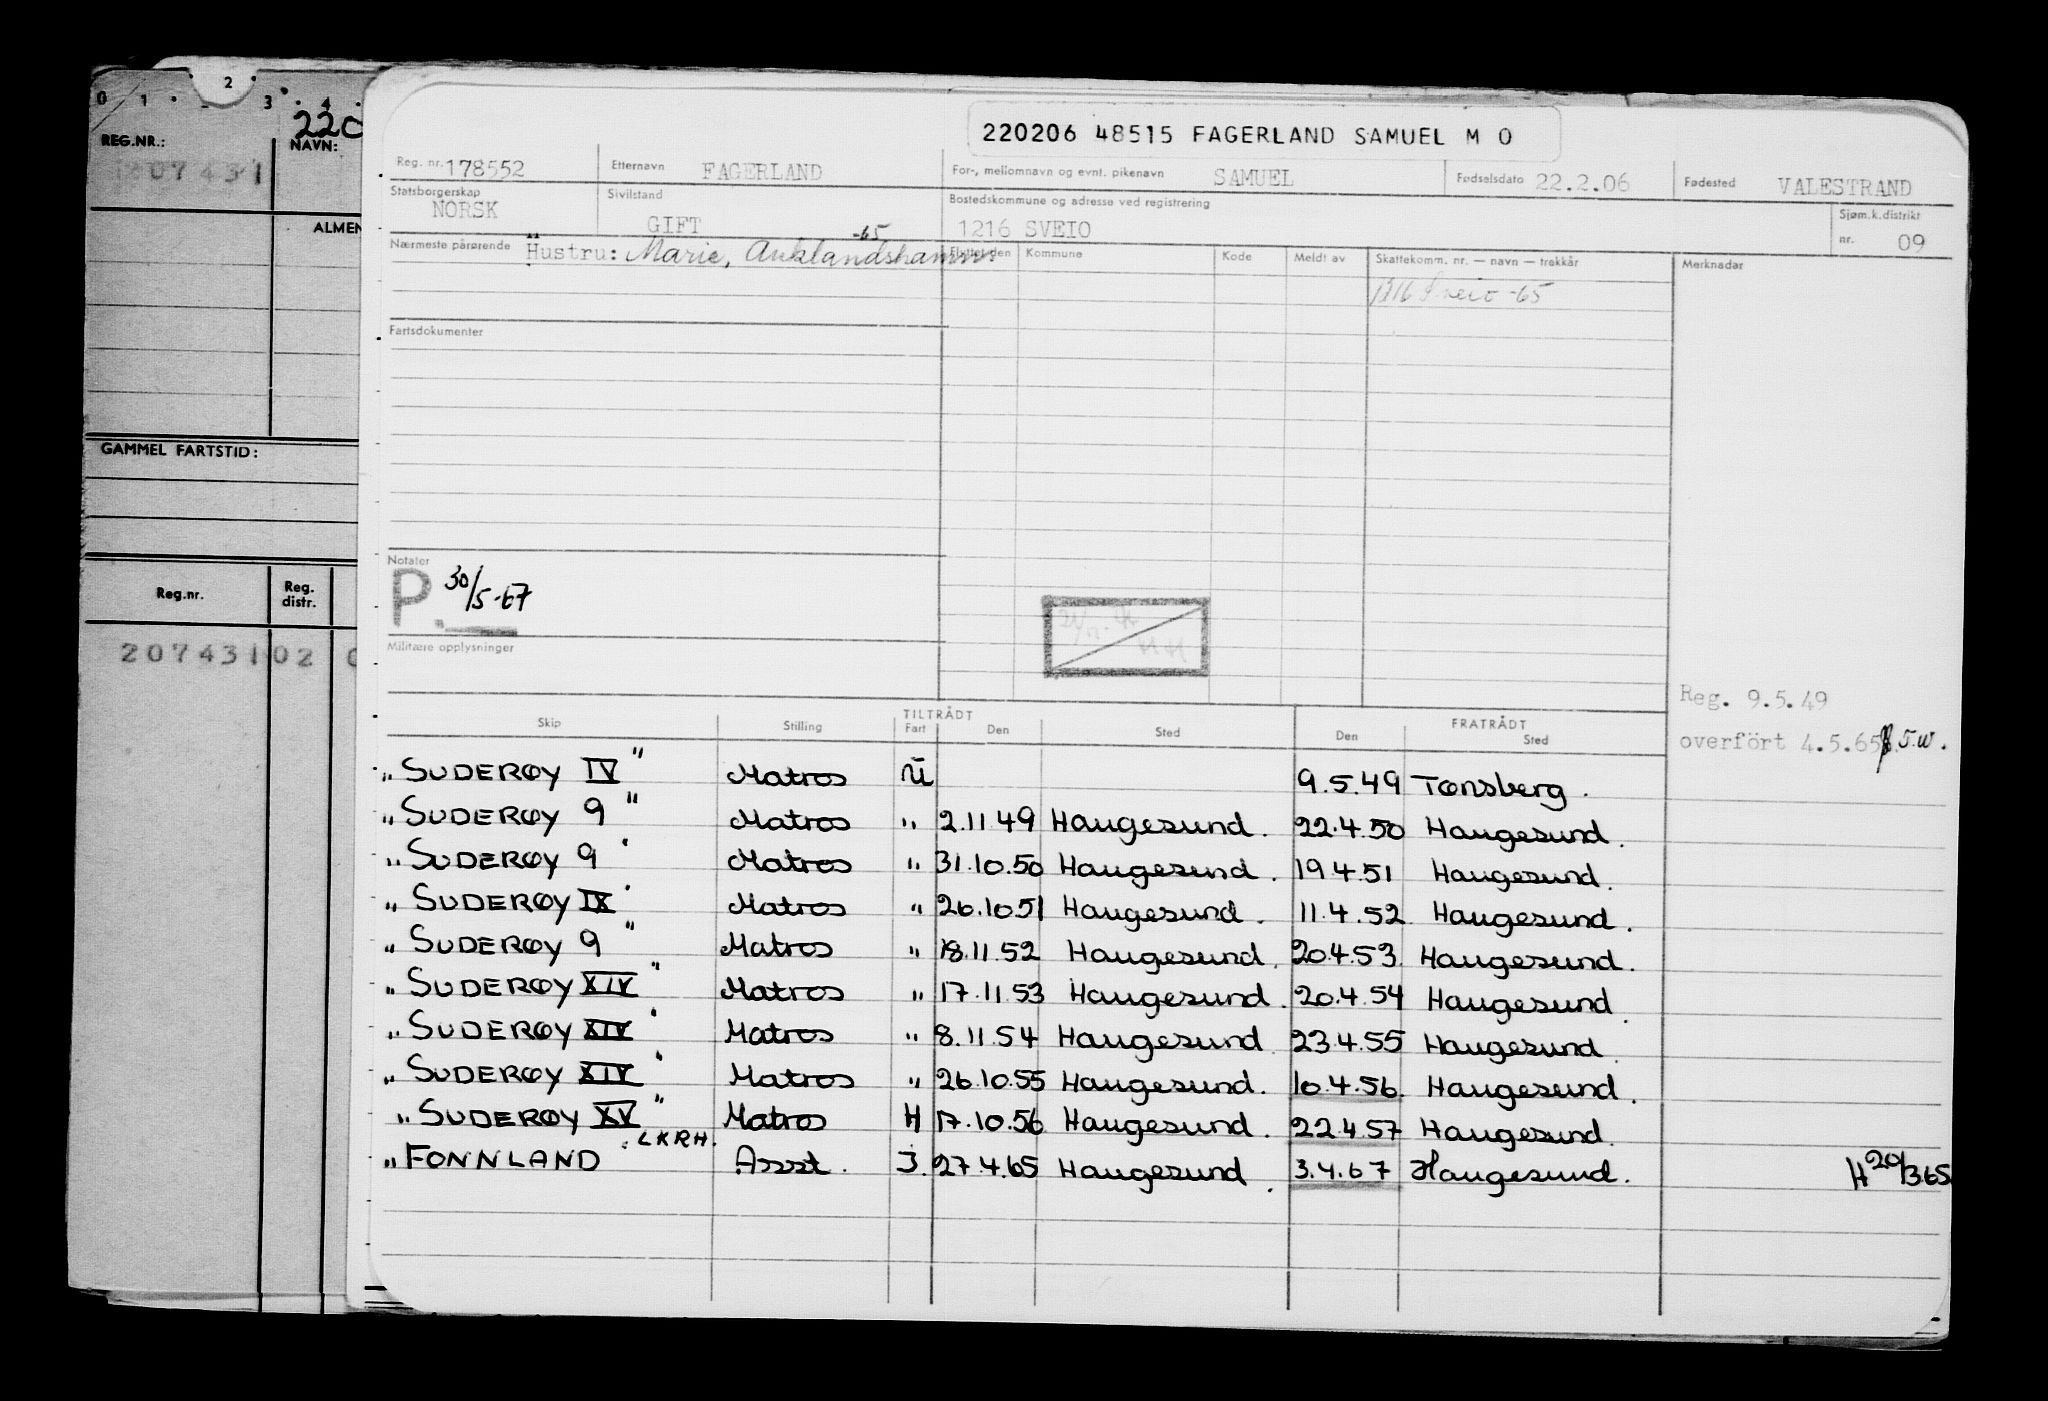 0 1 2 3 4
REG.NR.:
207431
NAVN:
ALMEN
GAMMEL FARTSTID:
Reg.nr. Reg. distr.
207431 02
220206 48515 FAGERLAND SAMUEL M O
Reg. nr. 178552 Etternavn FAGERLAND For-, mellomnavn og evnt. pikenavn SAMUEL Fødselsdato 22.2.06 Fødested VALESTRAND
Statsborgerskap NORSK Sivilstand GIFT Bostedskommune og adresse ved registrering 1216 SVEIO Sjøm.k.distrikt nr. 09
-65
Nærmeste pårørende Hustru: Marie, Auklandshamn. Flyttet den Kommune Kode Meldt av Skattekomm. nr. — navn — trekkår Merknader
1216 Sveio -65
Fartsdokumenter
Notater
P. 30/5-67
Militære opplysninger
Reg. 9.5.49
overfört 4.5.65
Skip Stilling TILTRÅDT Fart Den Sted FRATRÅDT Den Sted
„SUDERØY IV" Matros U 9.5.49 Tønsberg.
„SUDERØY 9" Matros " 2.11.49 Haugesund. 22.4.50 Haugesund.
„SUDERØY 9" Matros " 31.10.50 Haugesund. 19.4.51 Haugesund.
„SUDERØY IX" Matros " 26.10.51 Haugesund. 11.4.52 Haugesund.
„SUDERØY 9" Matros " 18.11.52 Haugesund. 20.4.53 Haugesund.
„SUDERØY XIV" Matros " 17.11.53 Haugesund. 20.4.54 Haugesund.
„SUDERØY XIV" Matros " 8.11.54 Haugesund. 23.4.55 Haugesund.
„SUDERØY XIV" Matros " 26.10.55 Haugesund. 10.4.56. Haugesund.
„SUDERØY XV" Matros H 17.10.56 Haugesund. 22.4.57 Haugesund.
„FONNLAND" LKRH. Asst. I. 27.4.65 Haugesund. 3.4.67 Haugesund. H 20/3.65